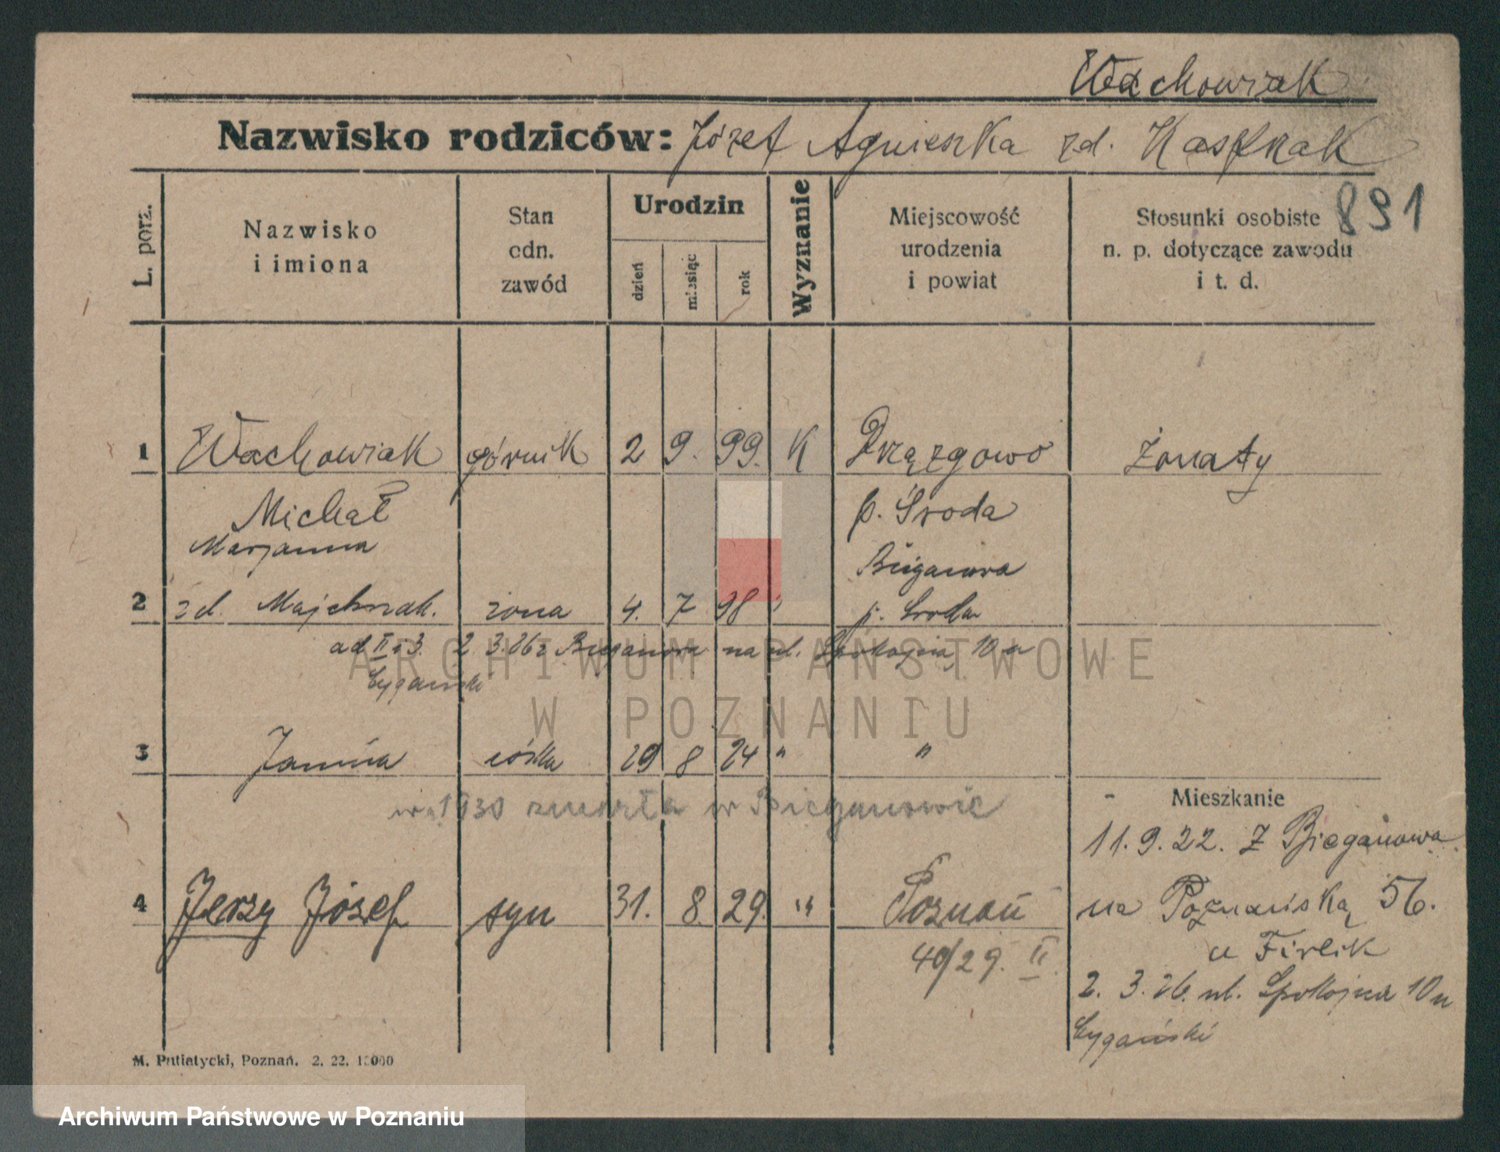 Wachowiak
Nazwisko rodziców: Józef Agnieszka zd. Kasprzak
891
L. porz.
Nazwisko i imiona
Stan odn. zawód
Urodzin
dzień miesiąc rok
Wyznanie
Miejscowość urodzenia i powiat
Stosunki osobiste n. p. dotyczące zawodu i t. d.
1 Wachowiak górnik 2 9. 99. K Drzązgowo Żonaty
Michał p. Środa
Marjanna Bieganowa
2 zd. Majchrzak. żona 4. 7 98 " p. Środa
ad II i 3. 2. 3. 26 z Bieganowa na ul. Spokojna 10 u
Cygański
3 Janina córka 29 8 24 " "
w 1930 zmarła w Bieganowie
Mieszkanie
11. 9. 22. Z Bieganowa
4 Jerzy Józef syn 31. 8. 29. " Poznań
na Poznańską 56.
40/29. II.
u Firlik
2. 3. 26. ul. Spokojna 10 u
Cygański
M. Putiatycki, Poznań. 2. 22. 15000
ARCHIWUM PAŃSTWOWE
W POZNANIU
Archiwum Państwowe w Poznaniu